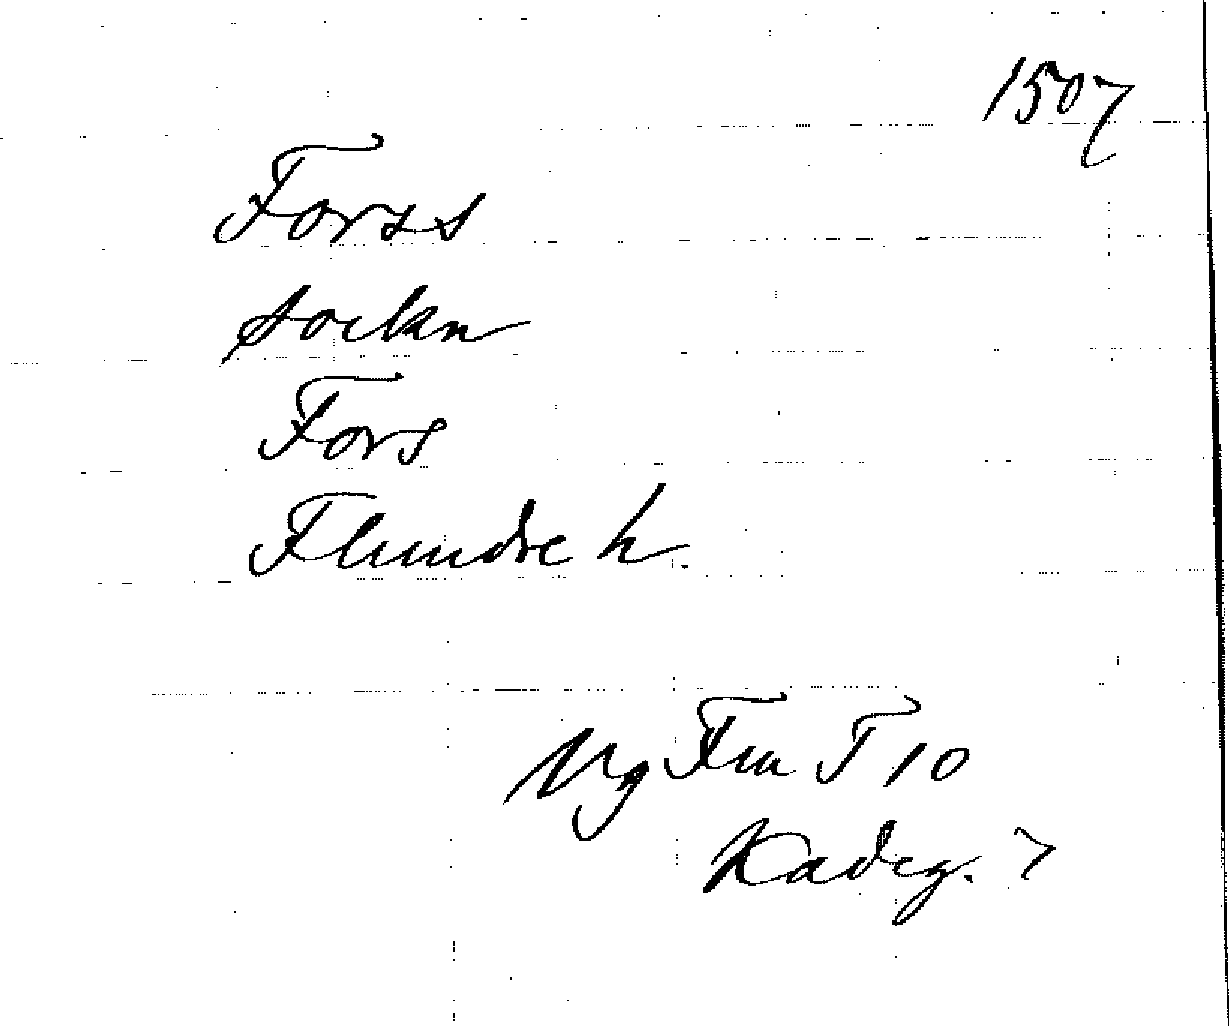 1507
Forss
sockn
Fors
Flundre h.
Vg Fru T 10
Kadeg. 7